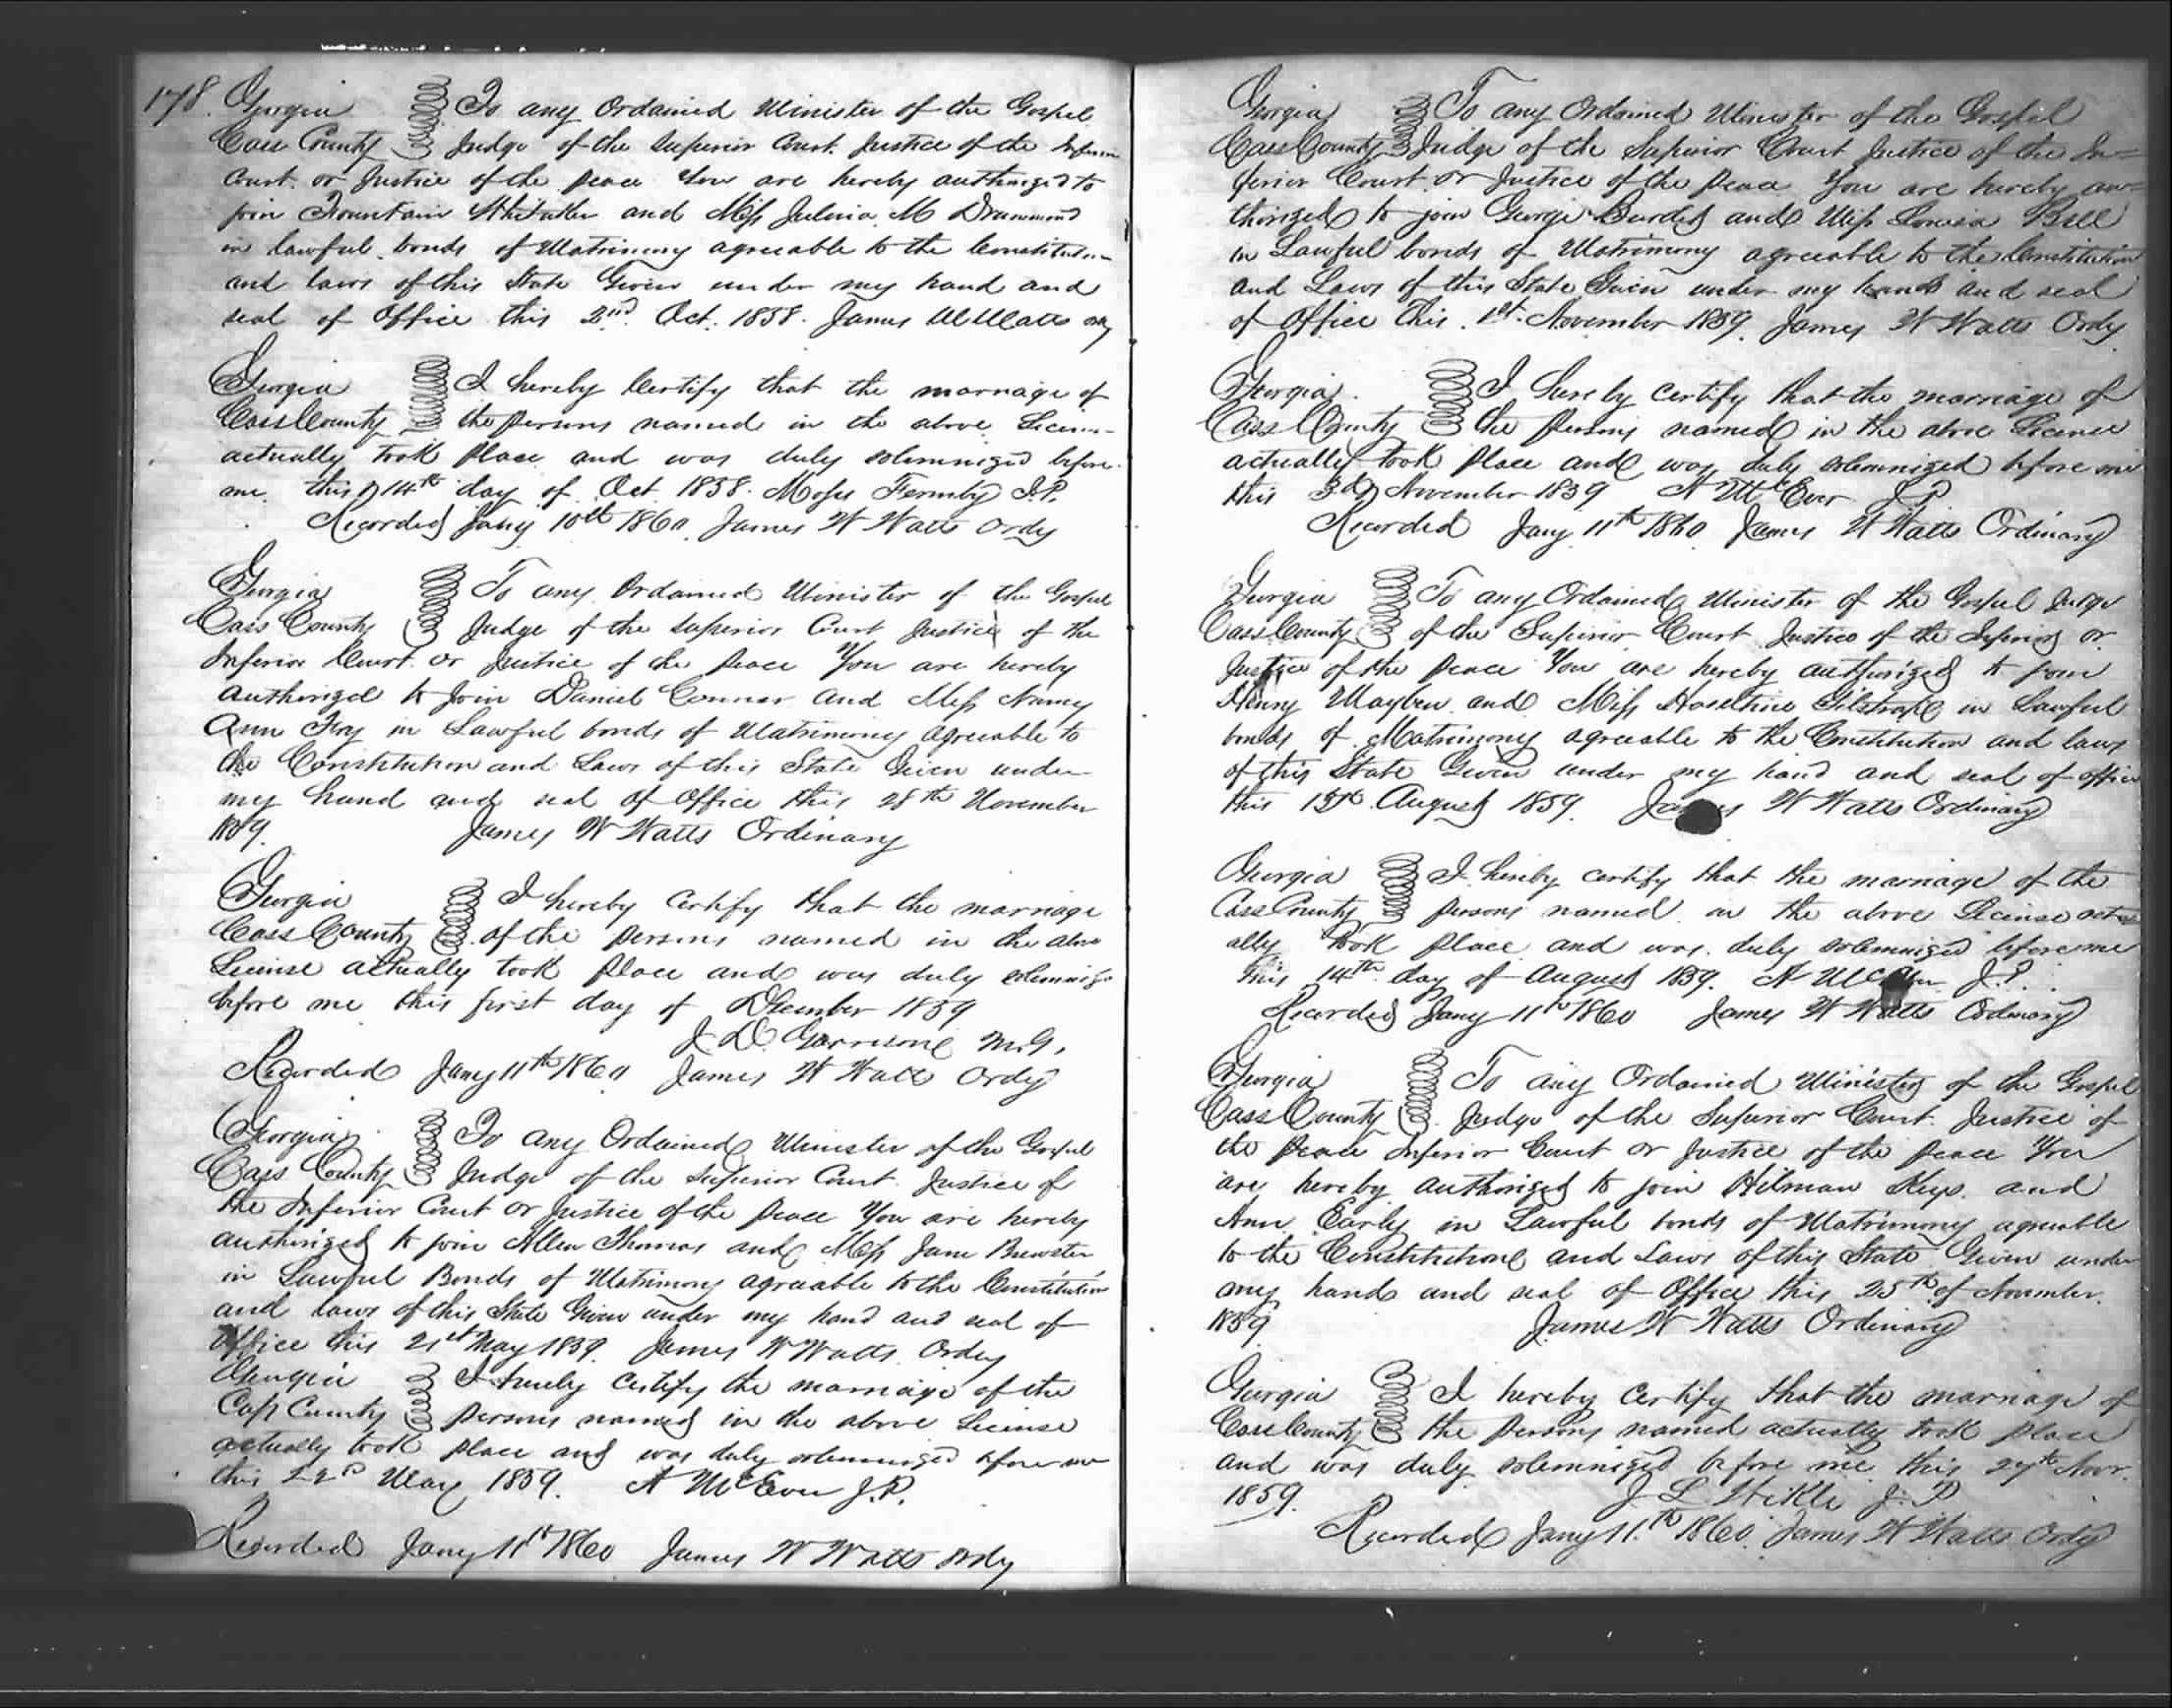 178. Georgia To any Ordained Minister of the Gospel
Cass County Judge of the Superior Court Justice of the Inferior
Court or Justice of the peace You are hereby authorized to
join Fountain and Miss M Drummond
in lawful bonds of Matrimony agreeable to the Constitution
and laws of this State Given under my hand and
seal of Office this 2nd Oct. 1858. James W Watts Ordy
Georgia I hereby Certify that the marriage of
Cass County the persons named in the above License
actually took place and was duly solemnized before
me this 14th day of Oct 1858. Moses J.P.
Recorded Jany 10th 1860 James W Watts Ordy
Georgia To any Ordained Minister of the Gospel
Cass County Judge of the Superior Court Justice of the
Inferior Court or Justice of the peace You are hereby
authorized to Join Daniel Conner and Miss Nancy
Ann in Lawful bonds of Matrimony agreeable to
the Constitution and Laws of this State Given under
my hand and seal of Office this 28th November
1859. James W Watts Ordinary
Georgia I hereby Certify that the marriage
Cass County of the persons named in the above
License actually took place and was duly solemnized
before me this first day of December 1859
J D Garrison M.G.
Recorded Jany 11th 1860 James W Watts Ordy
Georgia To any Ordained Minister of the Gospel
Cass County Judge of the Superior Court Justice of
the Inferior Court or Justice of the peace You are hereby
authorized to join Allen Thomas and Miss Jane Brewster
in Lawful Bonds of Matrimony agreeable to the Constitution
and laws of this State Given under my hand and seal of
Office this 21st May 1859. James W Watts Ordy
Georgia I hereby Certify the marriage of the
Cass County persons named in the above License
actually took place and was duly solemnized before me
this 22d May 1859. A McEver J.P.
Recorded Jany 11th 1860 James W Watts Ordy
Georgia To any Ordained Minister of the Gospel
Cass County Judge of the Superior Court Justice of the In=
ferior Court or Justice of the peace You are hereby au=
thorized to join George and Miss Louisa Bell
in Lawful bonds of Matrimony agreeable to the Constitution
and Laws of this State Given under my hand and seal
of Office this 1st November 1859. James W Watts Ordy
Georgia I hereby certify that the marriage of
Cass County the persons named in the above License
actually took place and was duly solemnized before me
this 3d November 1859 A McEver J P
Recorded Jany 11th 1860 James W Watts Ordinary
Georgia To any Ordained Minister of the Gospel Judge
Cass County of the Superior Court Justice of the Inferior or
Justice of the peace You are hereby authorized to join
Henry Mayben and Miss Gilstrap in Lawful
bonds of Matrimony agreeable to the Constitution and laws
of this State Given under my hand and seal of office
this 13th August 1859. James W Watts Ordinary
Georgia I hereby certify that the marriage of the
Cass County persons named in the above License actu
ally took place and was duly solemnized before me
this 14th day of August 1859. A McEver J.P.
Recorded Jany 11th 1860 James W Watts Ordinary
Georgia To any Ordained Minister of the Gospel
Cass County Judge of the Superior Court Justice of
the Peace Inferior Court or Justice of the peace You
are hereby authorized to join Hilman Keys and
Ann Early in Lawful bonds of Matrimony agreeable
to the Constitution and Laws of this State Given under
my hand and seal of Office this 25th of November
1859 James W Watts Ordinary
Georgia I hereby Certify that the marriage of
Cass County the persons named actually took place
and was duly solemnized before me this 27th Novr.
1859. J L J. P
Recorded Jany 11th 1860. James W Watts Ordy